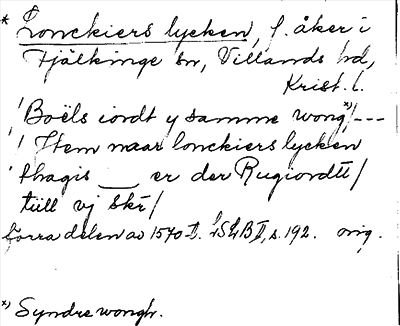 * Lonckiers lycken, f. åker i
Fjälkinge sn, Villands hd,
Krist. l.
'Boëls iordt y samme wong *)/---
/ Item naar lonckiers lycken
' thagis __ er der Rugiordtt/
tiill vj Skr/
Förra delen av 1570-t. LSkB II, s. 192. orig.
*) Syndre wongh.